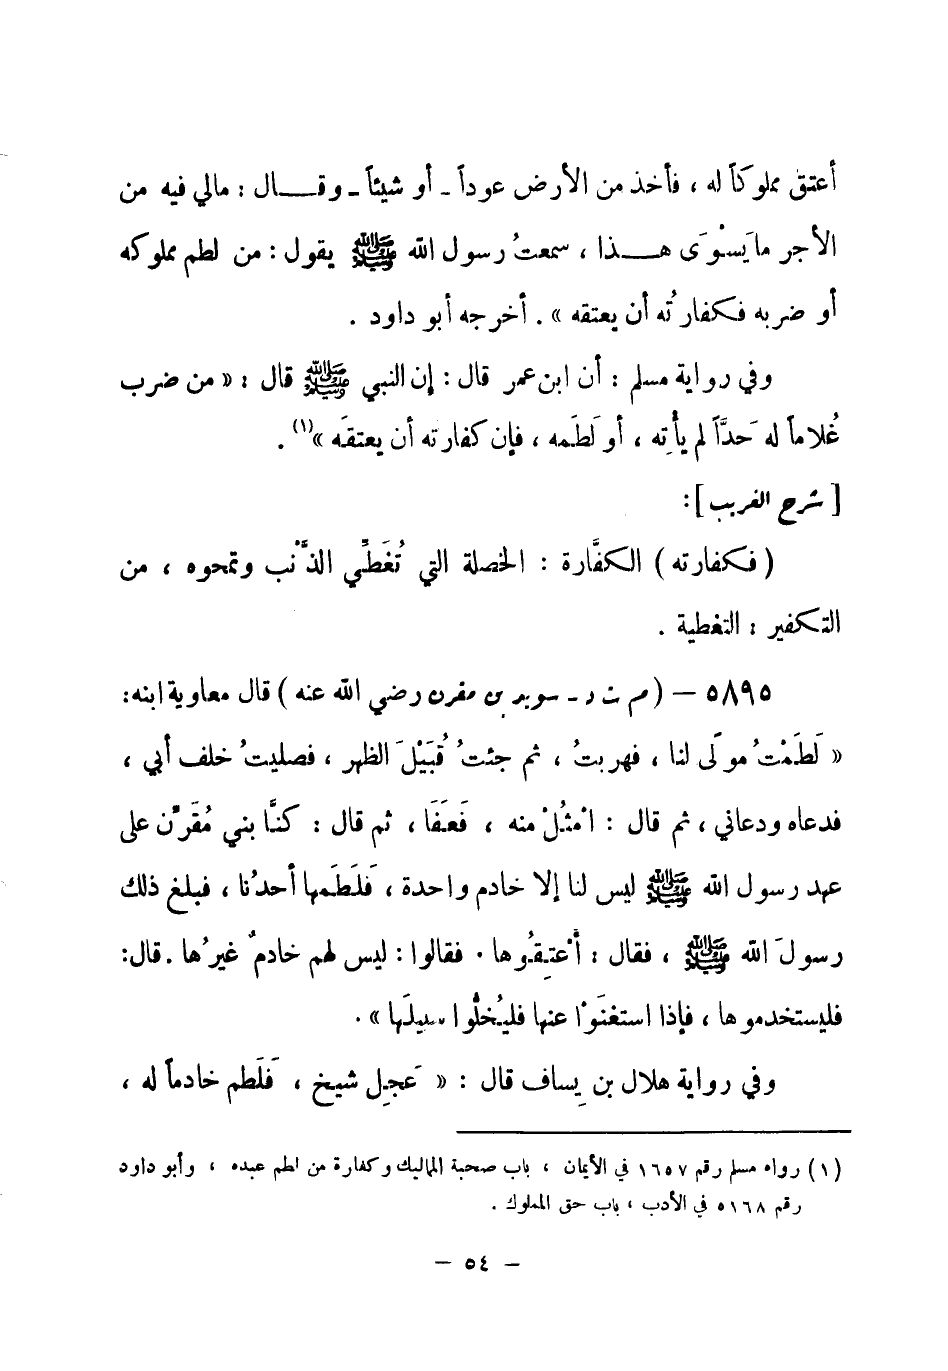 أعتق مملوكاً له ، فأخذ من الأرض عوداً ـ أو شيئاً ـ وقـــال : مالي فيه من
الأجر ما يَسْوَى هـــذا ، سمعتُ رسول الله ﷺ يقول : من لطم مملوكه
أو ضربه فكفارتُه أن يعتقه » . أخرجه أبو داود .
وفي رواية مسلم : أن ابن عمر قال : إن النبي ﷺ قال : « من ضرب
غُلاماً له حَدَّاً لم يأتِه ، أو لَطَمه ، فإن كفارته أن يعتقَه »(١) .
[ شرح الغريب ] :
( فكفارته ) الكفَّارة : الخصلة التي تُغَطِّي الذَّنْب وتمحوه ، من
التكفير : التغطية .
٥٨٩٥ — ( م ت د ـ سويد بن مقرن رضي الله عنه ) قال معاوية ابنه :
« لَطَمْتُ مولًى لنا ، فهربتُ ، ثم جئتُ قُبَيْلَ الظهر ، فصليتُ خلف أبي ،
فدعاه ودعاني ، ثم قال : امْثُلْ منه ، فَعَفَا ، ثم قال : كنَّا بني مُقَرِّن على
عهد رسول الله ﷺ ليس لنا إلا خادم واحدة ، فَلَطَمها أحدُنا ، فبلغ ذلك
رسولَ الله ﷺ ، فقال : أَعْتِقُوها . فقالوا : ليس لهم خادمٌ غيرُها . قال :
فليستخدموها ، فإذا استغنَوْا عنها فليُخلُّوا سبيلَها » .
وفي رواية هلال بن يِساف قال : « عَجِل شيخ ، فَلَطم خادماً له ،
(١) رواه مسلم رقم ١٦٥٧ في الأيمان ، باب صحبة المماليك وكفارة من لطم عبده ، وأبو داود
رقم ٥١٦٨ في الأدب ، باب حق المملوك .
— ٥٤ —